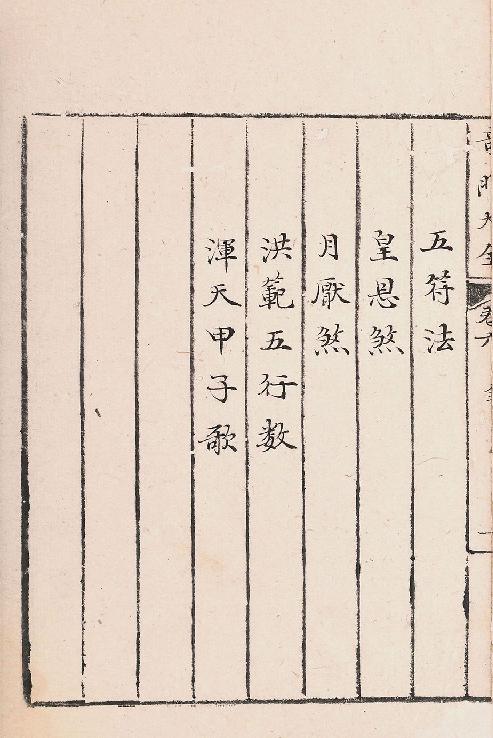 五符法
皇恩煞
月厭煞
洪範五行数
渾天甲子歌